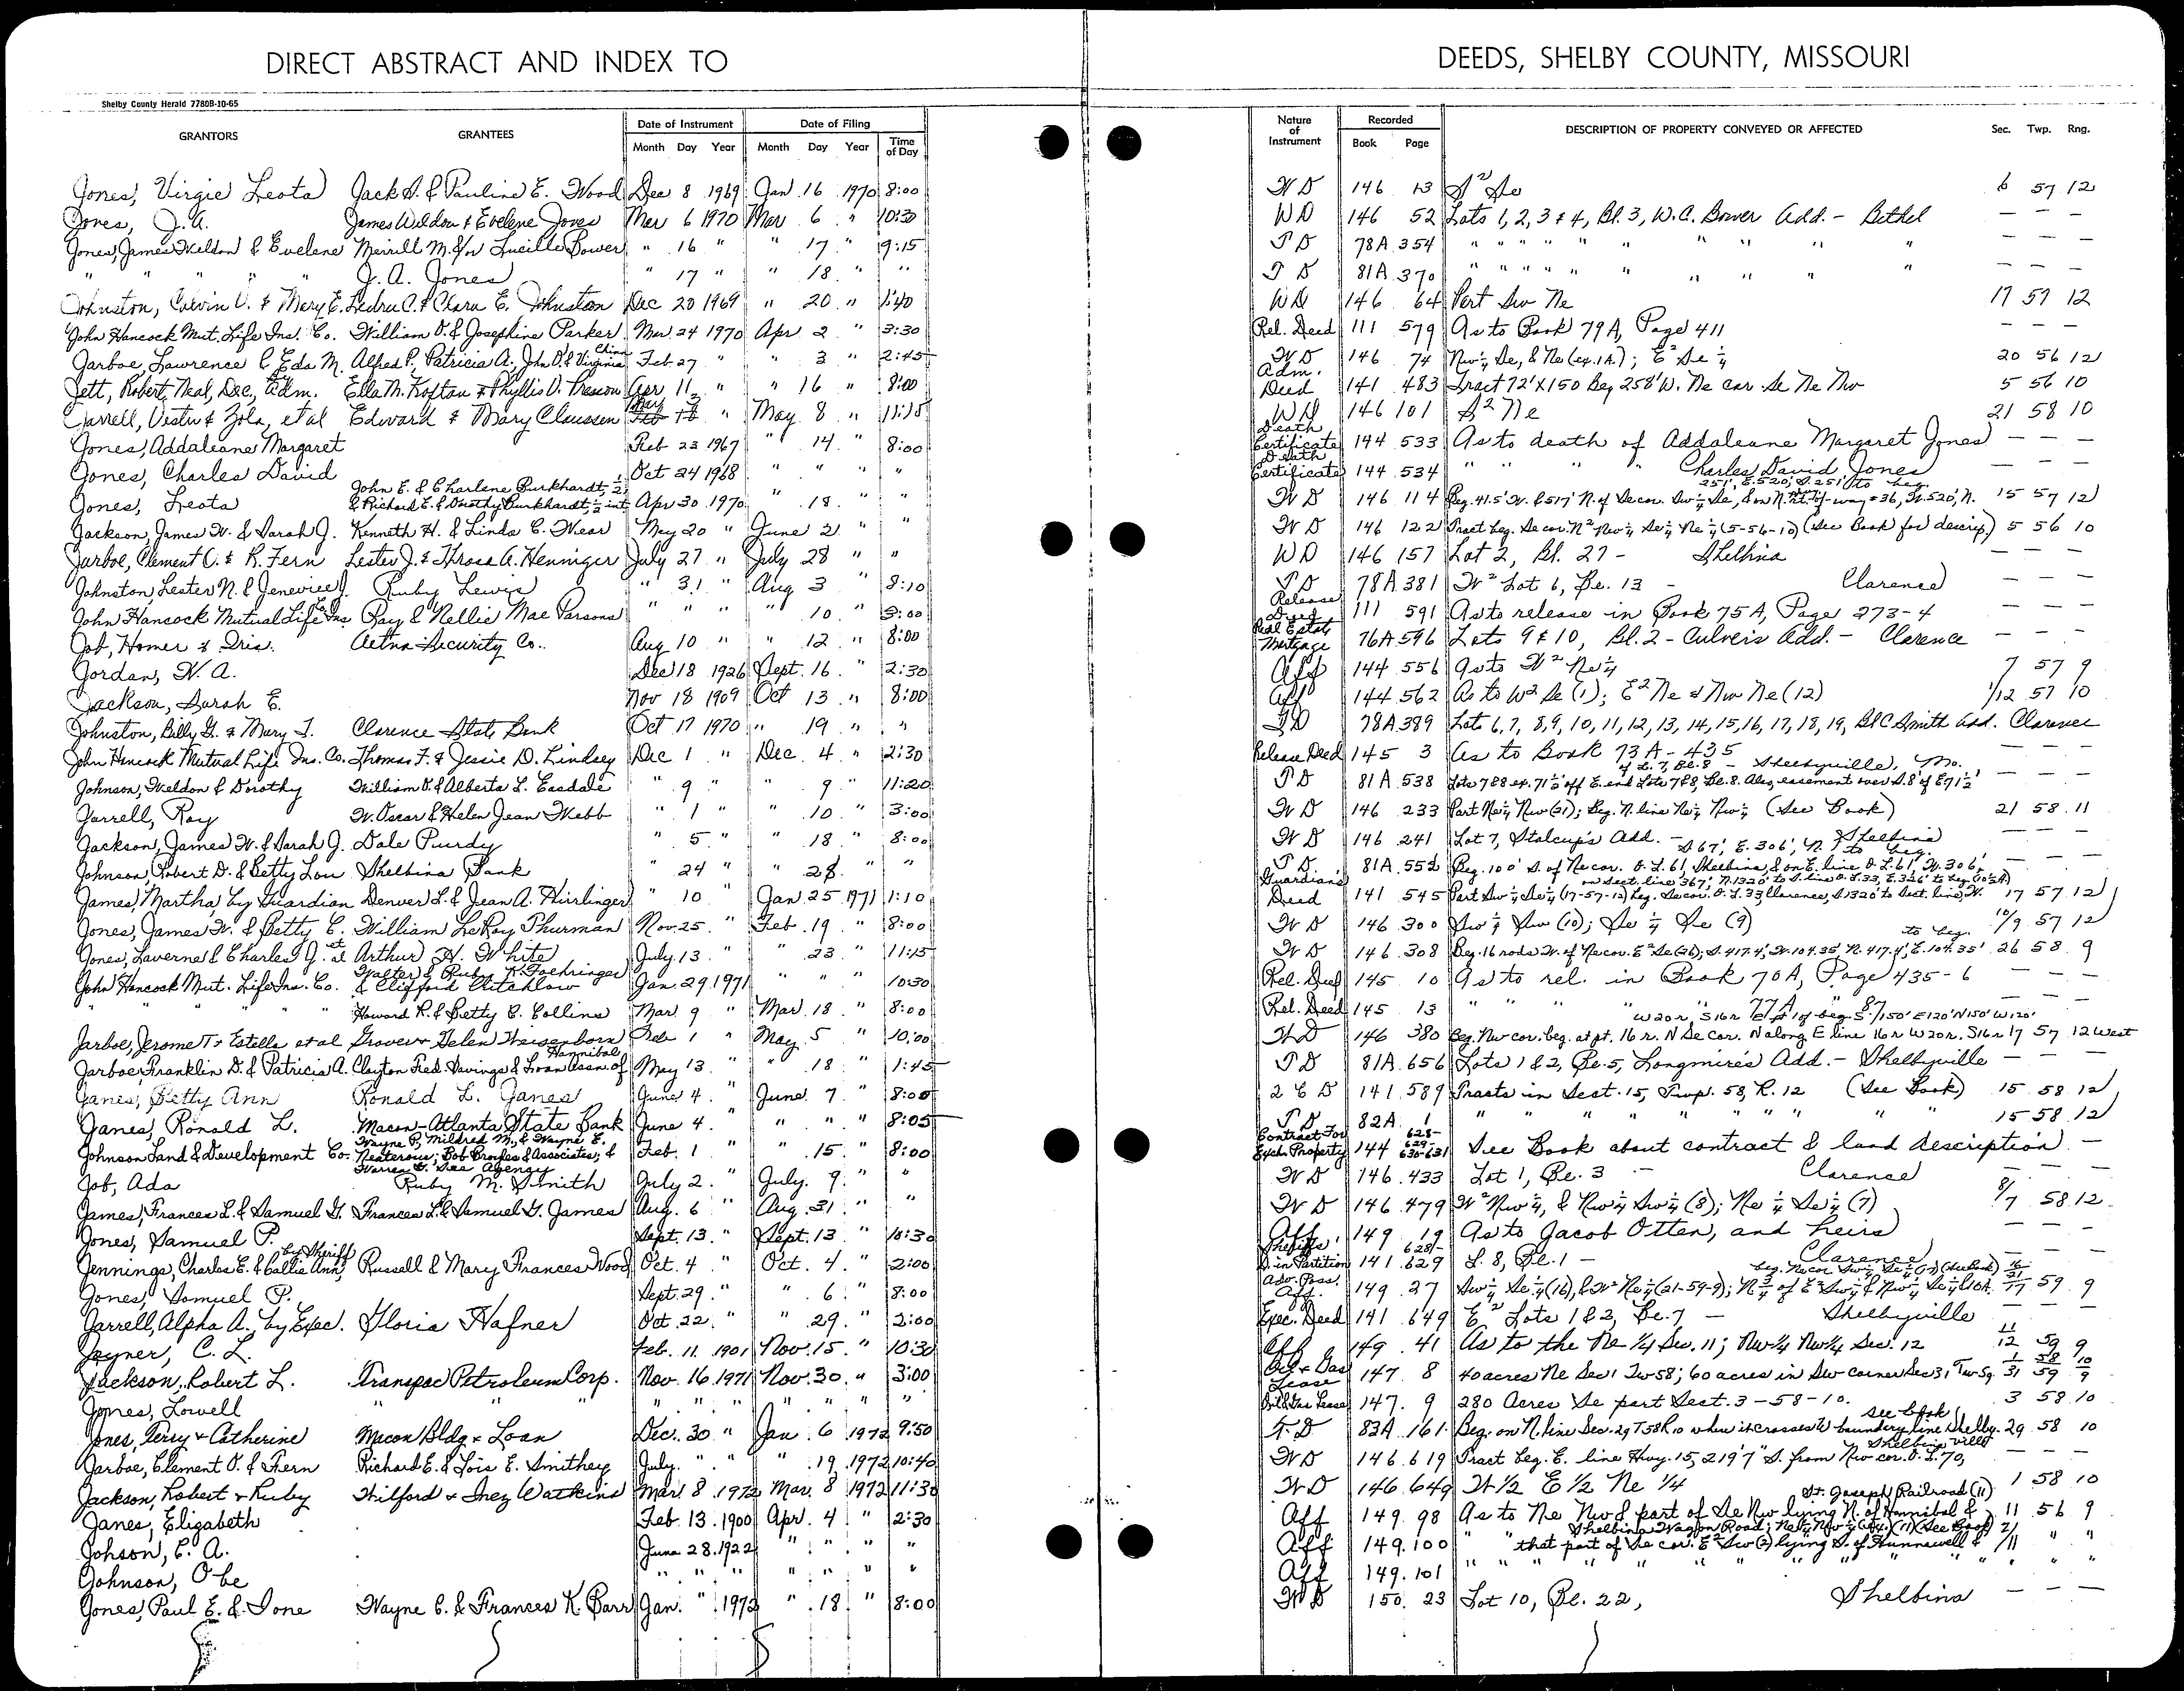 DIRECT ABSTRACT AND INDEX TO DEEDS, SHELBY COUNTY, MISSOURI
Shelby County Herald 7780B-10-65
GRANTORS GRANTEES Date of Instrument Month Day Year Date of Filing Month Day Year Time of Day Nature of Instrument Recorded Book Page DESCRIPTION OF PROPERTY CONVEYED OR AFFECTED Sec. Twp. Rng.
Jones, Virgie Leota Jack S. & Pauline E. Wood Dec 8 1969 Jan 16 1970 8:00 WD 146 13 S² Se 6 57 12
Jones, J.A. James Weldon & Evelene Jones Mar 6 1970 Mar 6 " 10:30 WD 146 52 Lots 1, 2, 3 & 4, Bl. 3, W.C. Bower Add. - Bethel — — —
Jones, James Weldon & Evelene Merrill M. &/or Lucille Bower " 16 " " 17 " 9:15 TD 78A 354 " " " " " " " " " — — —
" " " " J.A. Jones " 17 " " 18 " " TD 81A 370 " " " " " " " " " — — —
Johnston, Calvin V. & Mary E. Ledru C. & Clara E. Johnston Dec 20 1969 " 20 " 1:40 WD 146 64 Part Sw Ne 17 57 12
John Hancock Mut. Life Ins. Co. William O. & Josephine Parker Mar 24 1970 Apr 2 " 3:30 Rel. Deed 111 579 As to Book 79A, Page 411 — — —
Jarboe, Lawrence C & Eda M. Alfred P., Patricia A., John O. & Virginia China Feb 27 " " 3 " 2:45 WD 146 74 Nw¼ Se, & Ne (ex. 1A.); E² Se ¼ 20 56 12
Jett, Robert Neal, Dec, Adm. Ella M. & Phyllis D. Apr 11 " " 16 " 8:00 Adm. Deed 141 483 Tract 72' X 150 Beg 258' W. Ne cor. Se Ne Nw 5 56 10
Jarrell, Vestu & Zola, et al Edward & Mary Claussen May " May 8 " 11:15 WD 146 101 S² Ne 21 58 10
Jones, Addaleane Margaret Feb 23 1967 " 14 " 8:00 Death Certificate 144 533 As to death of Addaleane Margaret Jones — — —
Jones, Charles David Oct 24 1968 " " " " Death Certificate 144 534 " " " " Charles David Jones — — —
Jones, Leota John E. & Charlene Burkhardt, ½ & Richard E. & Dorothy Burkhardt, ½ int Apr 30 1970 " 18 " " WD 146 114 Beg. 41.5' W. & 517' N. of Se cor. Sw¼ Se, & on N. rt. of way #36, W. 520', N. 251', E. 520', S 251' to beg. 15 57 12
Jackson, James W. & Sarah J. Kenneth H. & Linda C. Wear May 20 " June 2 " " WD 146 122 Tract beg. Se cor. N² Nw¼ Se¼ Ne¼ (5-56-10) (See Book for descrip.) 5 56 10
Jarboe, Clement O. & R. Fern Lester J. & Throsa A. Henniger July 27 " July 28 " " WD 146 157 Lot 2, Bl. 27 - Shelbina — — —
Johnston, Lester N. & Jenevieve J. Ruby Lewis " 31 " Aug 3 " 8:10 TD 78A 381 W² Lot 6, Bl. 13 - Clarence — — —
John Hancock Mutual Life Ins Co Ray & Nellie Mae Parsons " " " " 10 " 3:00 Release Deed 111 591 As to release in Book 75A, Page 273-4 — — —
Job, Homer & Iris. Aetna Security Co.. Aug 10 " " 12 " 8:00 Real Estate Mortgage 76A 596 Lots 9 & 10, Bl. 2 - Culver's Add. - Clarence — — —
Jordan, W. A. Dec 18 1926 Sept. 16 " 2:30 Aff 144 556 As to W² Ne¼ 7 57 9
Jackson, Sarah E. Nov 18 1909 Oct 13 " 8:00 Aff 144 562 As to W² Se (1); E² Ne & Nw Ne (12) 1/12 57 10
Johnston, Billy G. & Mary J. Clarence State Bank Oct 17 1970 " 19 " " TD 78A 389 Lots 6, 7, 8, 9, 10, 11, 12, 13, 14, 15, 16, 17, 18, 19, Bl C Smith Add. Clarence
John Hancock Mutual Life Ins. Co. Thomas F. & Jessie D. Lindsey Dec 1 " Dec. 4 " 2:30 Release Deed 145 3 As to Book 73A - 435 — — —
Johnson, Weldon & Dorothy William O. & Alberta L. Easdale " 9 " " 9 " 11:20 TD 81A 538 Lots 7&8 ex. 71½' off E. end Lots 7&8, Bl. 8. Also, easement over S. 8' of E 71½' of L. 7, Bl. 8 - Shelbyville, Mo. — — —
Jarrell, Roy W. Oscar & Helen Jean Webb " 1 " " 10 " 3:00 WD 146 233 Part Ne¼ Nw (21); Beg. N. line Ne¼ Nw¼ (See Book) 21 58 11
Jackson, James W. & Sarah J. Dale Purdy " 5 " " 18 " 8:00 WD 146 241 Lot 7, Stalcup's Add. - Shelbina — — —
Johnson, Robert D. & Betty Lou Shelbina Bank " 24 " " 28 " " TD 81A 552 Beg. 100' S. of Ne cor. O.L. 61, Shelbina, & on E. line O.L. 61, W. 306', S 67', E. 306', N. to beg. — — —
James, Martha by Guardian Denver L. & Jean A. Hirrlinger " 10 Jan 25 1971 1:10 Guardian's Deed 141 545 Part Sw¼ Se¼ (17-57-12) beg. Se cor. O.L. 33, Clarence, S 1320' to Sect. line, W. on Sect. line 367', N. 1320' to S. line O.L. 33, E. 326' to beg. 17 57 12
Jones, James W. & Betty C. William LeRoy Thurman Nov. 25 " Feb. 19 " 8:00 WD 146 300 Sw¼ Sw (10); Se¼ Se (9) 10/9 57 12
Jones, Laverna & Charles J. et al Arthur H. White July 13 " " 23 " 11:15 WD 146 308 Beg. 16 rods W. of Ne cor. E² Se (26); S. 417.4', W. 104.35', N. 417.4', E. 104.35' to beg. 26 58 9
John Hancock Mut. Life Ins. Co. Walter & Ruby K. Foehringer & Clifford Critchlow Jan. 29 1971 " " " 10:30 Rel. Deed 145 10 As to rel. in Book 70A, Page 435-6 — — —
" " " " Howard R. & Betty C. Collins Mar. 9 " Mar. 18 " 8:00 Rel. Deed 145 13 " " " " 77A " 87 — — —
Jarboe, Jerome T & Estella et al Grover & Helen Weisenborn Feb 1 " May 5 " 10:00 WD 146 380 Beg. Nw cor. beg. at pt. 16 r. N Se Cor. N along E line 16 r W 20 r, S 16 r 17 57 12 West
Jarboe, Franklin D. & Patricia A. Clayton Fed. Savings & Loan Assn. of Hannibal May 13 " " 18 " 1:45 TD 81A 656 Lots 1 & 2, Bl. 5, Longmire's Add. - Shelbyville — — —
Janes, Betty Ann Ronald L. Janes June 4 " June 7 " 8:00 2 C D 141 589 Tracts in Sect. 15, Twp. 58, R. 12 (See Book) 15 58 12
Janes, Ronald L. Macon-Atlanta State Bank June 4 " " " " 8:05 TD 82A 1 " " " " " " " " 15 58 12
Johnson Land & Development Co. Wayne P., Mildred M., & Wayne E. ; Bob Broyles & Associates; & Warren G. See Agency Feb. 1 " " 15 " 8:00 Contract For Exch. Property 144 628-629-630-631 See Book about contract & land description —
Job, Ada Ruby M. Smith July 2 " July 9 " " WD 146 433 Lot 1, Bl. 3 - Clarence — — —
James, Frances L. & Samuel G. Frances L. & Samuel G. James Aug. 6 " Aug. 31 " " WD 146 479 W² Nw¼, & Nw¼ Sw¼ (8); Ne¼ Se¼ (7) 8/7 58 12
Jones, Samuel P. Sept. 13 " Sept. 13 " 10:30 Aff. 149 19 As to Jacob Otten, and heirs — — —
Jennings, Charles E. & Callie Ann, by Sheriff Russell & Mary Frances Wood Oct. 4 " Oct. 4 " 2:00 Sheriff's D. in Partition 141 628-629 L. 8, Bl. 1 - Clarence — — —
Jones, Samuel P. Sept. 29 " " 6 " 8:00 Adv. Poss. Aff. 149 27 Sw¼ Se¼ (16), & W² Ne¼ (21-59-9); 59 9
Jarrell, Alpha A., by Exec. Gloria Hafner Oct. 22 " " 29 " 2:00 Exec. Deed 141 649 E² Lots 1 & 2, Bl. 7 - Shelbyville — — —
Joyner, C. L. Feb. 11 1901 Nov. 15 " 10:30 Aff 149 41 As to the Ne 1/4 Sec. 11; Nw 1/4 Nw 1/4 Sec. 12 11 12 59 9
Jackson, Robert L. Transpac Petroleum Corp. Nov. 16 1971 Nov. 30 " 3:00 Oil & Gas Lease 147 8 40 acres Ne Sec 1 Tw 58; 60 acres in Sw corner Sec 31, Tw 59 1/31 58/59 10/9
Jones, Lowell " " " " " " " " " Oil & Gas Lease 147 9 280 Acres Se part Sect. 3-58-10. 3 58 10
Jones, Perry & Catherine Macon Bldg & Loan Dec. 30 " Jan 6 1972 9:50 T.D 83A 161 Beg. on N. line Sec. 29 T58 R10 where it crosses W boundary line Shelbyville see book 29 58 10
Jarboe, Clement O. & Fern Richard E. & Lois E. Smithey July " " " 19 1972 10:40 WD 146 619 Tract beg. E. line Hwy. 15, 219'7" S. from Nw cor. O.L. 70, Shelbina
Jackson, Robert & Ruby Wilford & Inez Watkins Mar. 8 1972 Mar. 8 1972 11:30 WD 146 649 W 1/2 E 1/2 Ne 1/4 1 58 10
Janes, Elizabeth Feb. 13 1900 Apr. 4 " 2:30 Aff 149 98 As to Ne Nw & part of Se Nw lying N. of Hannibal & St. Joseph Railroad (11) 11 56 9
Johson, C. A. June 28 1922 " " " " Aff 149 100 " " that part of Se cor. E² Sw (2) lying S. of Hunnewell & Shelbina Wagon Road; (See Book) 2/11 " "
Johnson, Obe " " " " " " " Aff 149 101 " " " " " " " " " " "
Jones, Paul E. & Ione Wayne C. & Frances K. Barr Jan. " 1972 " 18 " 8:00 WD 150 23 Lot 10, Bl. 22, Shelbina — — —